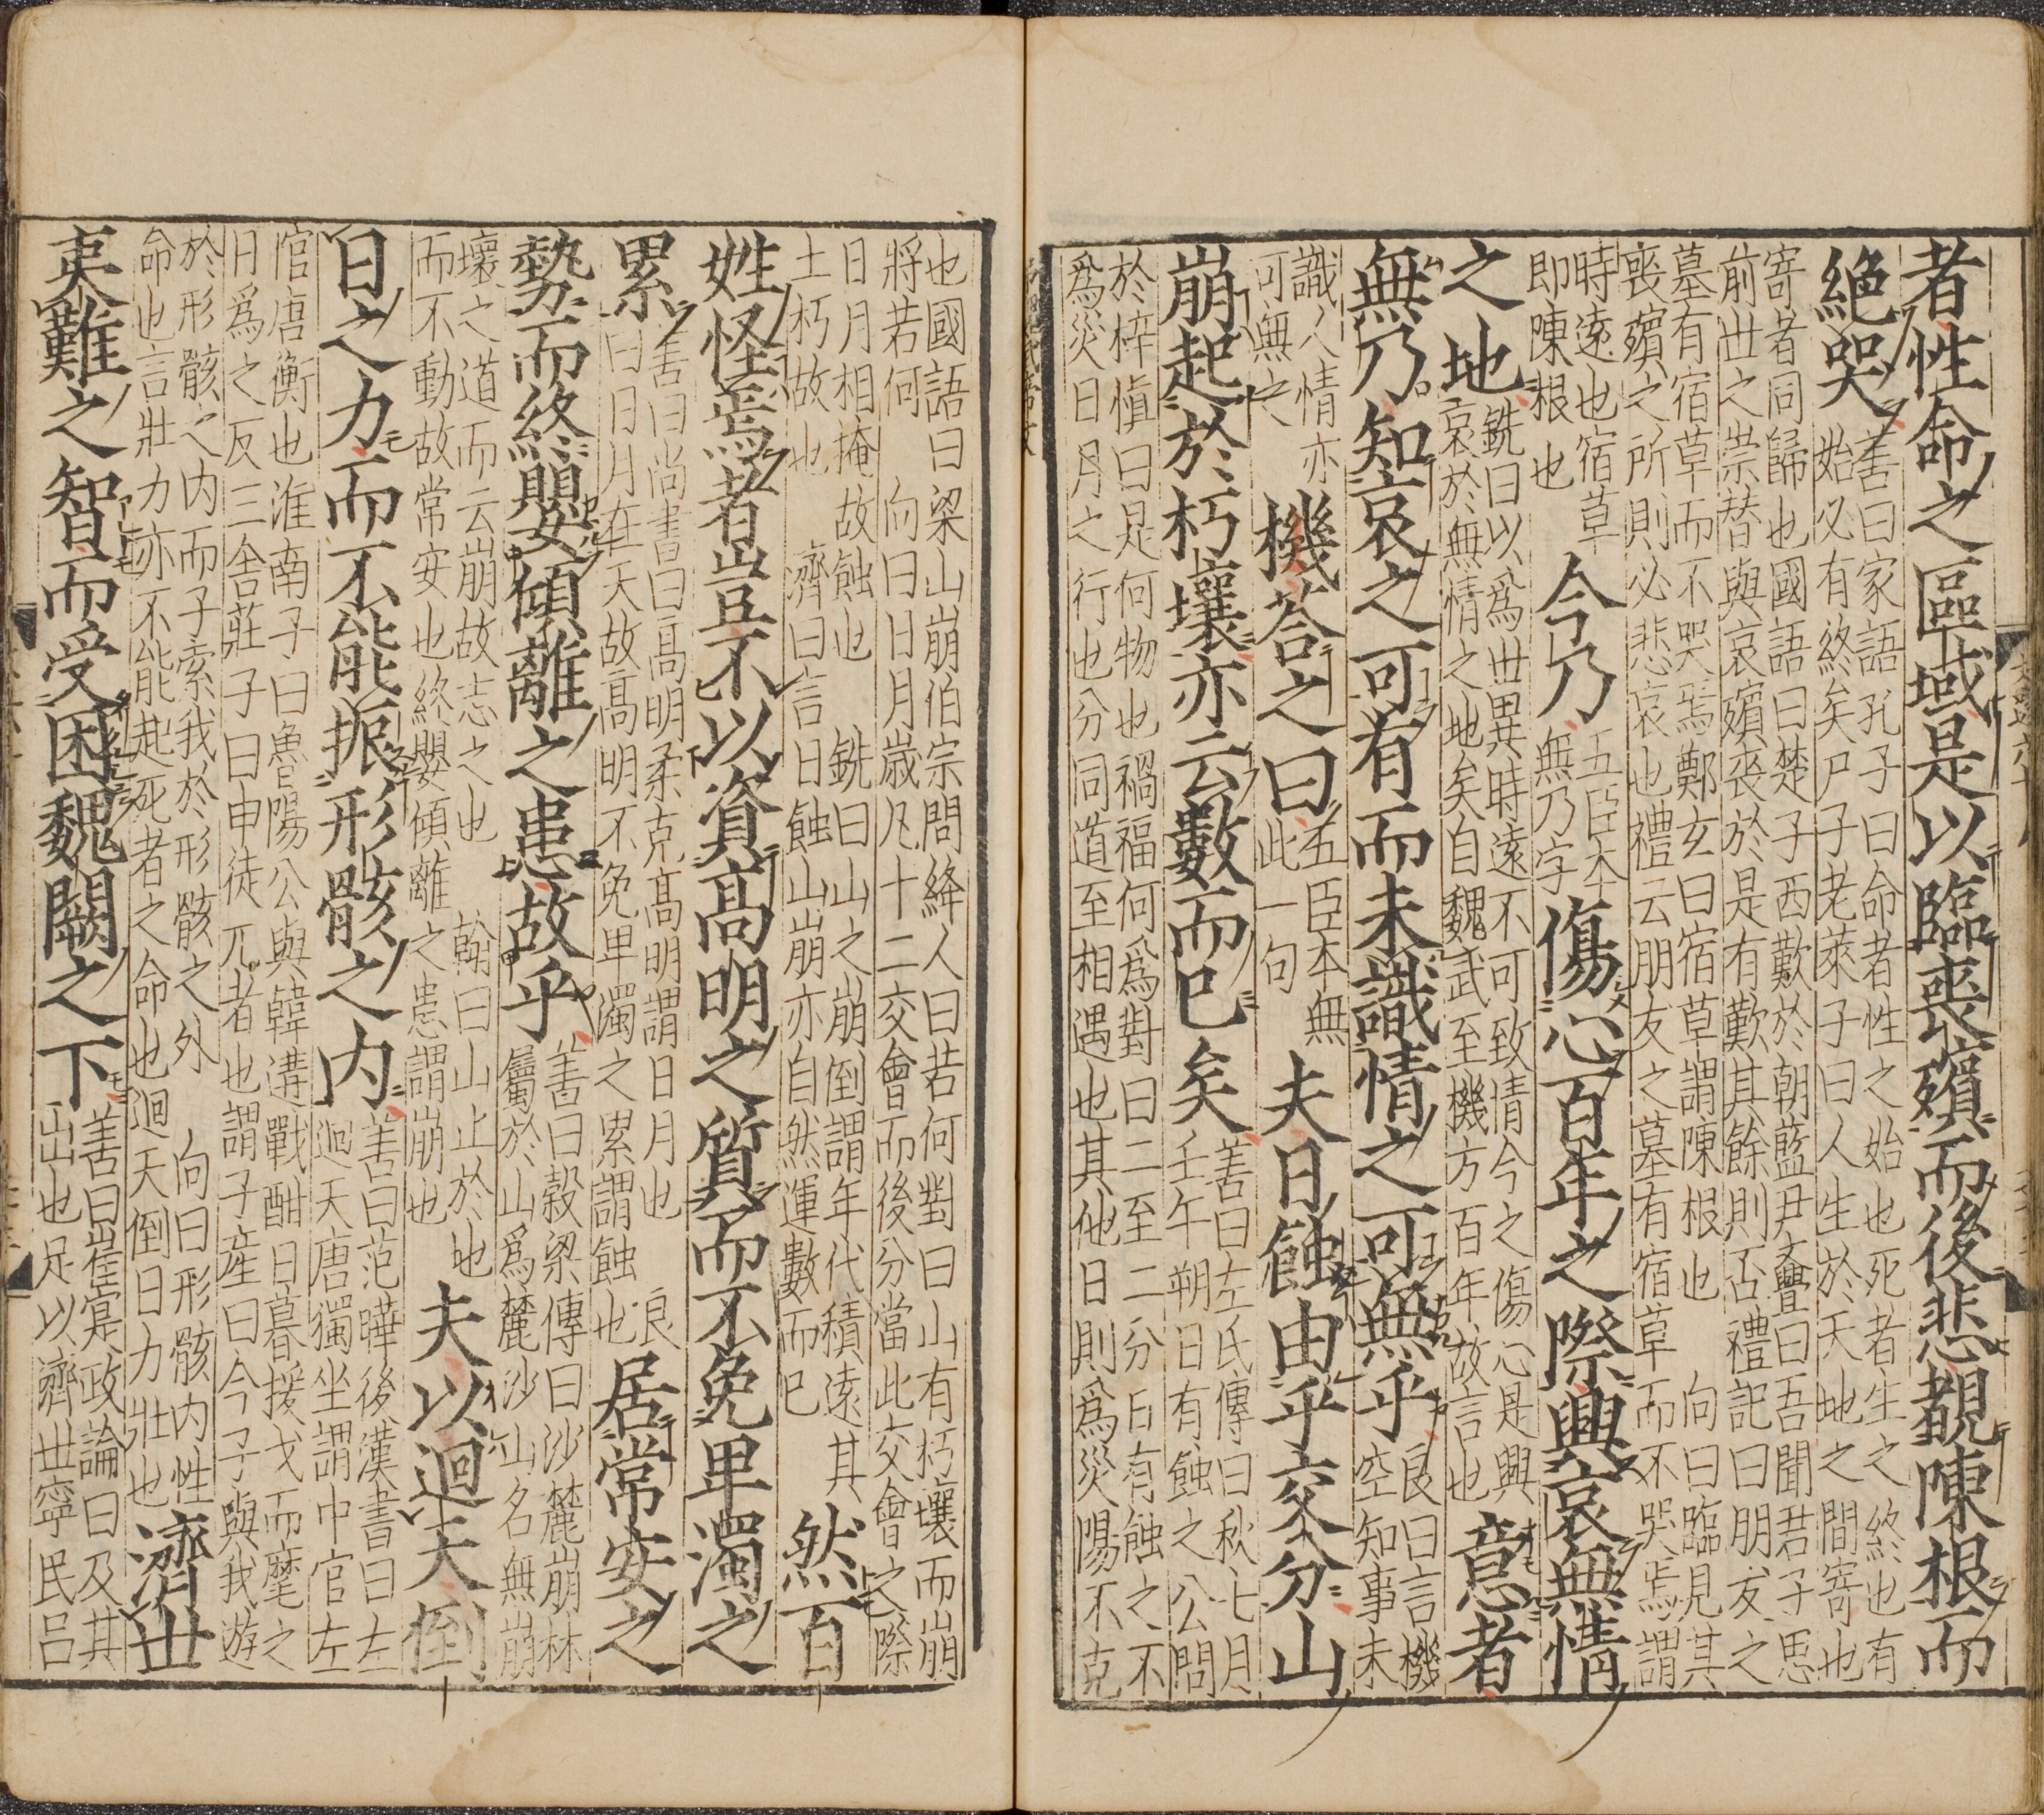 者性命之區域是以臨喪殯而後悲覩陳根而
絶哭
善曰家語孔子曰命者性之始也死者生之終也有
始必有終矣尸子老萊子曰人生於天地之間寄也
寄者同歸也國語曰楚子西歎於朝藍尹亹曰吾聞君子思
前世之崇替與哀殯喪於是有歎其餘則否禮記曰朋友之
墓有宿草而不哭焉鄭玄曰宿草謂陳根也　向曰臨見其
喪殯之所則必悲哀也禮云朋友之墓有宿草而不哭焉謂
時遠也宿草
即陳根也
今乃
五臣本
無乃字
傷心百年之際興哀無情
之地
銑曰以爲世異時遠不可致情今之傷心是興
哀於無情之地矣自魏武至機方百年故言也
意者
無乃知哀之可有而未識情之可無乎
良曰言機
空知事未
識人情亦
可無之
機荅之曰
五臣本無
此一句
夫日蝕由乎交分山
崩起於朽壤亦云數而已矣
善曰左氏傳曰秋七月
壬午朔日有蝕之公問
於梓愼曰是何物也禍福何爲對曰二至二分日有蝕之不
爲災日月之行也分同道至相遇也其他日則爲災陽不克
也國語曰梁山崩伯宗問絳人曰若何對曰山有朽壤而崩
將若何　向曰日月歲凡十二交會而後分當此交會之際
日月相掩故蝕也　銑曰山之崩倒謂年代積遠其
土朽故也　濟曰言日蝕山崩亦自然運數而已
然百
姓怪焉者豈不以資高明之質而不免卑濁之
累
善曰尚書曰高明柔克高明謂日月也　良
曰日月在天故高明不免卑濁之累謂蝕也
居常安之
勢而終嬰傾離之患故乎
善曰穀梁傳曰沙麓崩林
屬於山爲麓沙山名無崩
壞之道而云崩故志之也　翰曰山止於地
而不動故常安也終嬰傾離之患謂崩也
夫以迴天倒
日之力而不能振形骸之内
善曰范曄後漢書曰左
迴天唐獨坐謂中官左
悺唐衡也淮南子曰魯陽公與韓溝戰酣日暮援戈而麾之
日爲之反三舍莊子曰申徒兀者也謂子産曰今子與我遊
於形骸之内而子索我於形骸之外　向曰形骸内性
命也言壯力亦不能起死者之命也迴天倒日力壯也
濟世
夷難之智而受困魏闕之下
善曰崔寔政論曰及其
出也足以濟世寧民吕